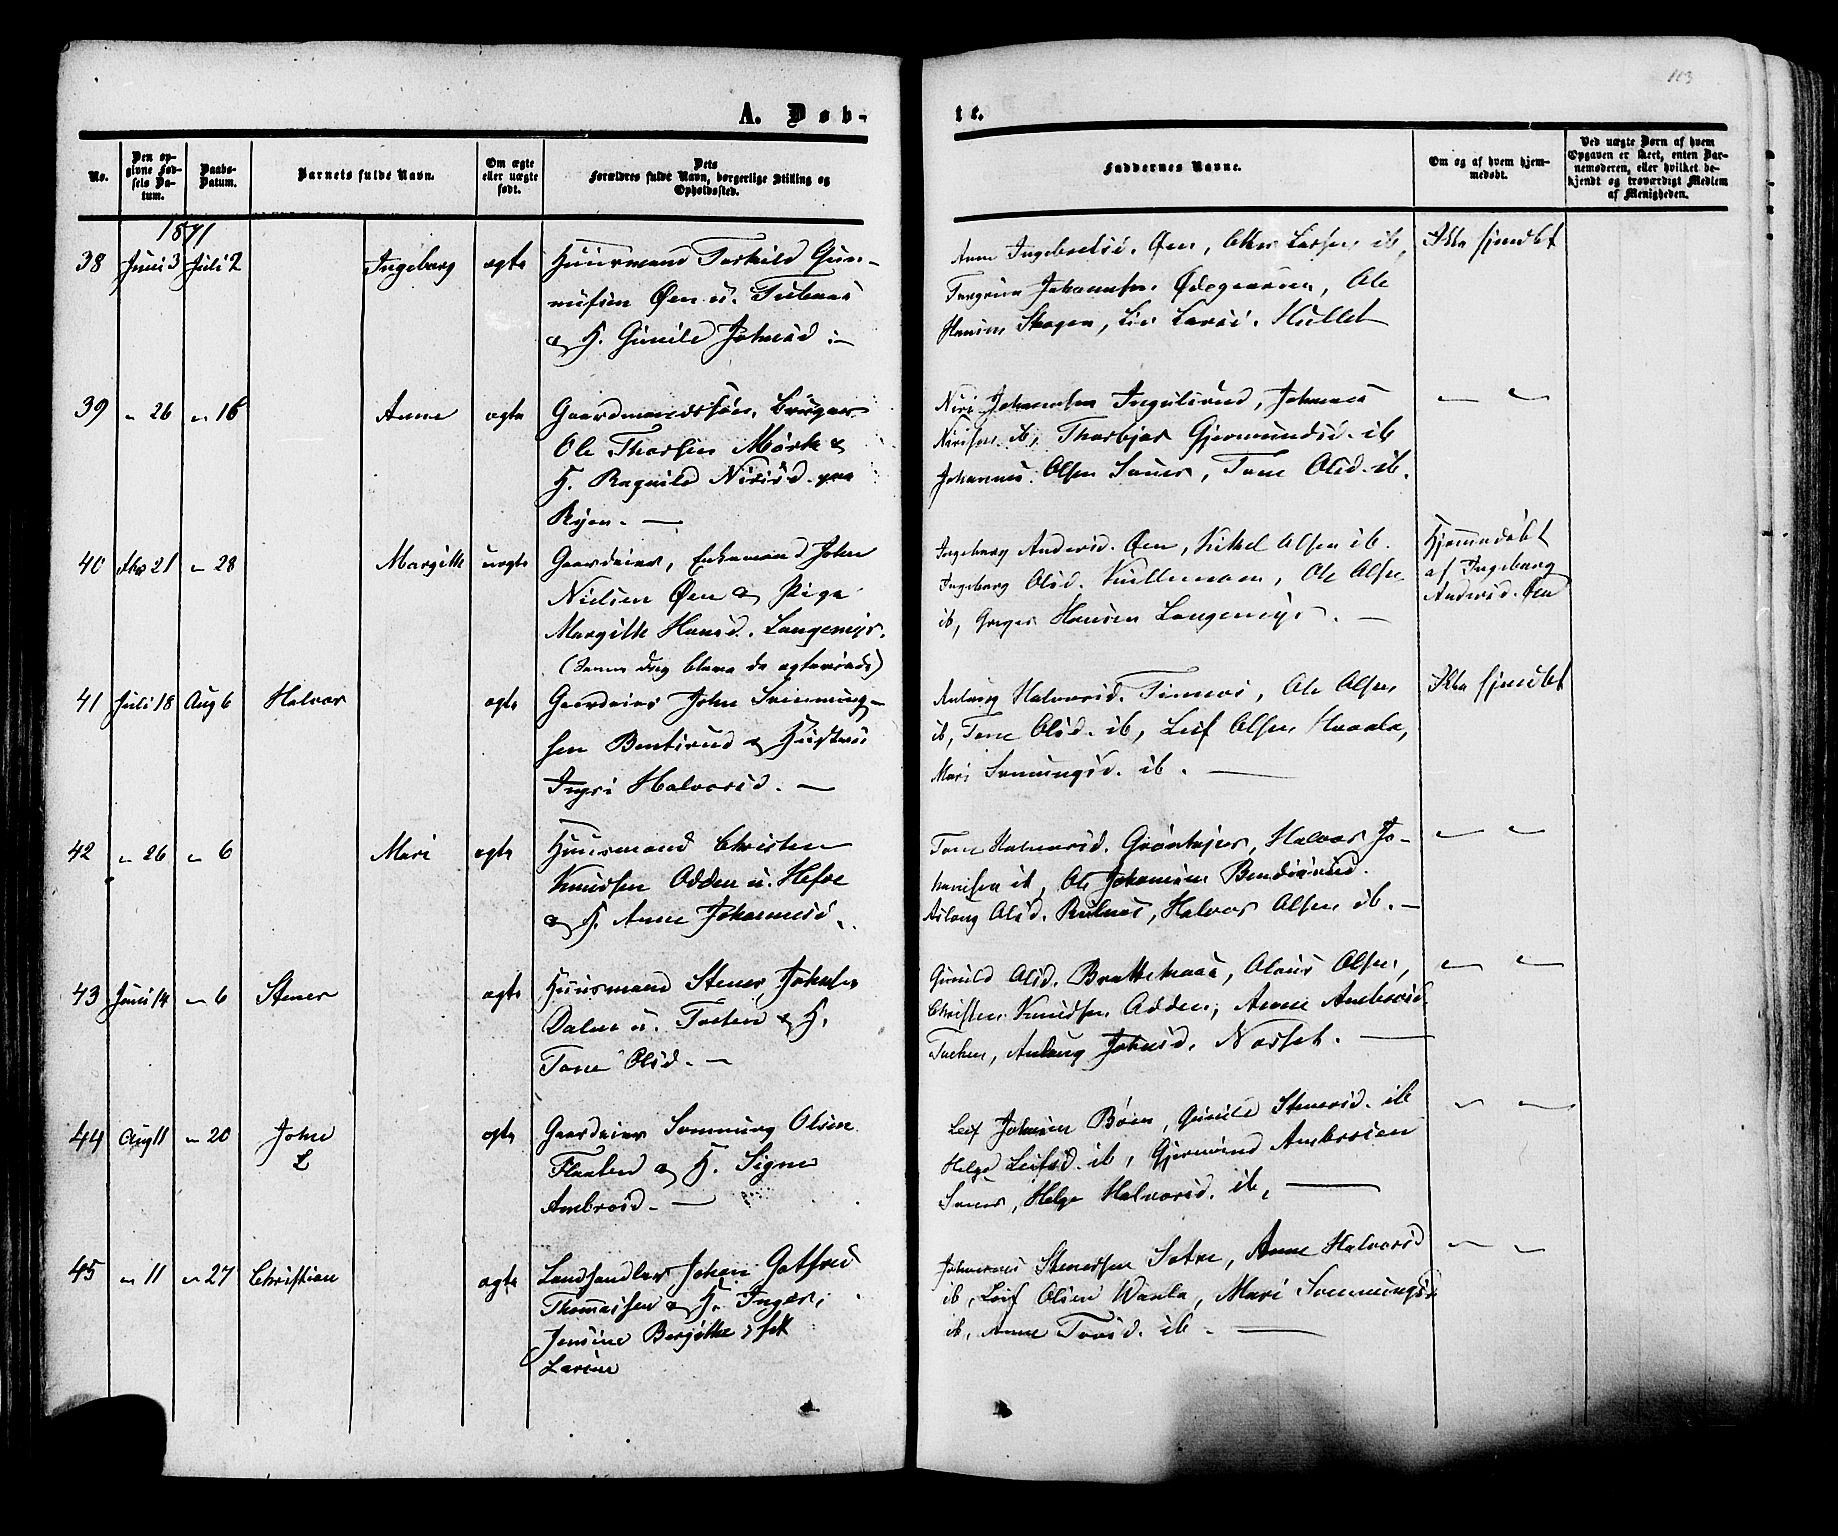 103
A. Døb- te.
No.
Den opgivne Fødsels Datum.
Daabs-Datum.
Barnets fulde Navn.
Om ægte eller uægte født.
Dets Forældres fulde Navn, borgerlige Stilling og Opholdssted.
Faddernes Navne.
Om og af hvem hjemmedøbt.
Ved uægte Børn af hvem Opgaven er skeet, enten Barnemoderen, eller hvilket bekjendt og troværdigt Medlem af Menigheden.
1871
38 Juni 3 Juli 2 Ingeborg ægte Huusmand Torkild Gun-
Øen u.
& H. Gunild Johnsd.
Anne Øen, Larsen ib,
Johannesen Ødegaarden, Ole
Hansen Skogen, Liv Larsd. Hullet
Ikke hjmdbt
39 " 26 " 16 Anne ægte Gaardmandssøn, Bruger
Ole Thorsen Mørk &
H. Ragnild Nirisd.
Ryen. —
Niri Johannesen Johannes
Nirisen ib, Thorbjør Gjermundsd. ib
Johannes Olsen Sauer, Tone Olsd. ib.
" "
40 21 " 28 Margitte uægte Gaardeier, Enkemand John
Nielsen Øen & Pige
Margitte Hansd. Langemyr.
(Samme Dag bleve de ægteviede)
Ingeborg Andersd. Øen, Kittel Olsen ib.
Ingeborg Olsd. Ole Olsen
ib, Greger Hansen Langemyr. —
Hjemmedøbt
af Ingeborg
Andersd. Øen
41 Juli 18 Aug 6 Halvor ægte Gaardeier John Svennung-
sen Bentsrud & Hustru
Ingri Halvorsd. —
Aslaug Halvorsd. Ole Olsen
ib, Tone Olsd. ib, Leif Olsen Haala,
Mari Svenungsd. ib. —
Ikke hjmdbt
42 " 26 " 6 Mari ægte Huusmand Christen
Knudsen Odden u. Hefre
& H. Anne Johannesd.
Tone Halvorsd. Halvor Jo-
hannesen ib, Ole Johannesen
Aslaug Olsd. Halvor Olsen ib. —
" "
43 Juni 14 " 6 Stener ægte Huusmand Stener Johnsen
Dalen u. & H.
Tone Olsd. —
Gunild Olsd. Olaus Olsen,
Christen Knudsen Odden, Anne Ambrosd.
Aslaug Johnsd. —
" "
44 Aug 11 " 20 John
L ægte Gaardeier Sonnung Olsen
Flaaten & H. Signe
Ambrosd. —
Leif Johnsen Bøen, Gunild Stenersd. ib
Helge Leifsd. ib, Gjermund Ambrosen
Sauer, Helge Halvorsd. ib, —
" "
45 " 11 " 27 Christian ægte Landhandler Johan Gotfred
Thomassen & H. Inger
Jensine Berjitte, født
Larsen
Johannes Stenersen Sætre, Anne Halvorsd
ib, Leif Olsen Mari Sonnungsd
ib, Anne Torsd. ib. —
" "